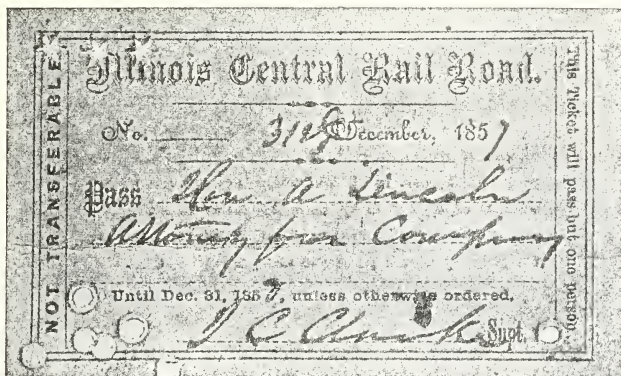 NOT TRANSFERABLE.
Illinois Central Rail Road.
No. 31st December, 1857
Pass Hon A Lincoln
Attorney for Company
Until Dec. 31, 1857, unless otherwise ordered,
Supt.
This Ticket will pass but one person.